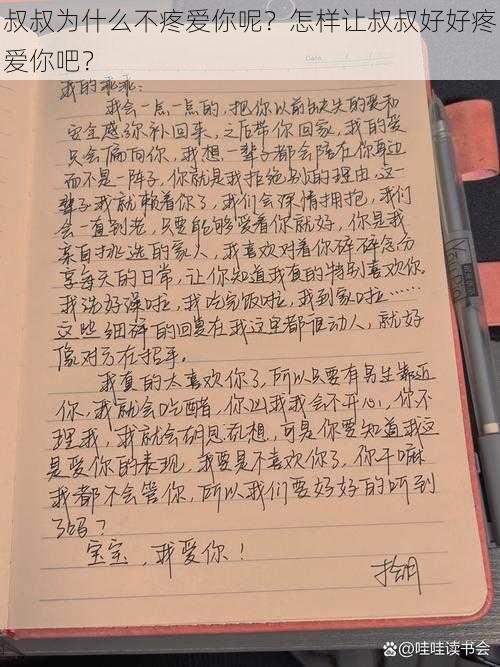 叔叔为什么不疼爱你呢？怎样让叔叔好好疼
爱你吧？
我的乖乖:
我会一点一点的，把你以前缺失的爱和
安全感弥补回来，之后带你回家，我的爱
只会偏向你，我想一辈子都会陪在你身边
而不是一阵子，你就是我拒绝别的理由，这一
辈子我就赖着你了，我们会深情拥抱，我们
会一直到老，只要能够爱着你就好，你是我
亲自挑选的家人，我喜欢对着你碎碎念分
享每天的日常，让你知道我真的特别喜欢你。
我洗好澡啦，我吃完饭啦，我到家啦……
这些细碎的回复在我这里都很动人，就好
像对方在招手。
我真的太喜欢你了，所以只要有男生靠近
你，我就会吃醋，你凶我我会不开心，你不
理我，我就会胡思乱想，可是你要知道我这
是爱你的表现，我要是不喜欢你了，你干嘛
我都不会管你，所以我们要好好的听到
了吗？
宝宝，我爱你！
@哇哇读书会